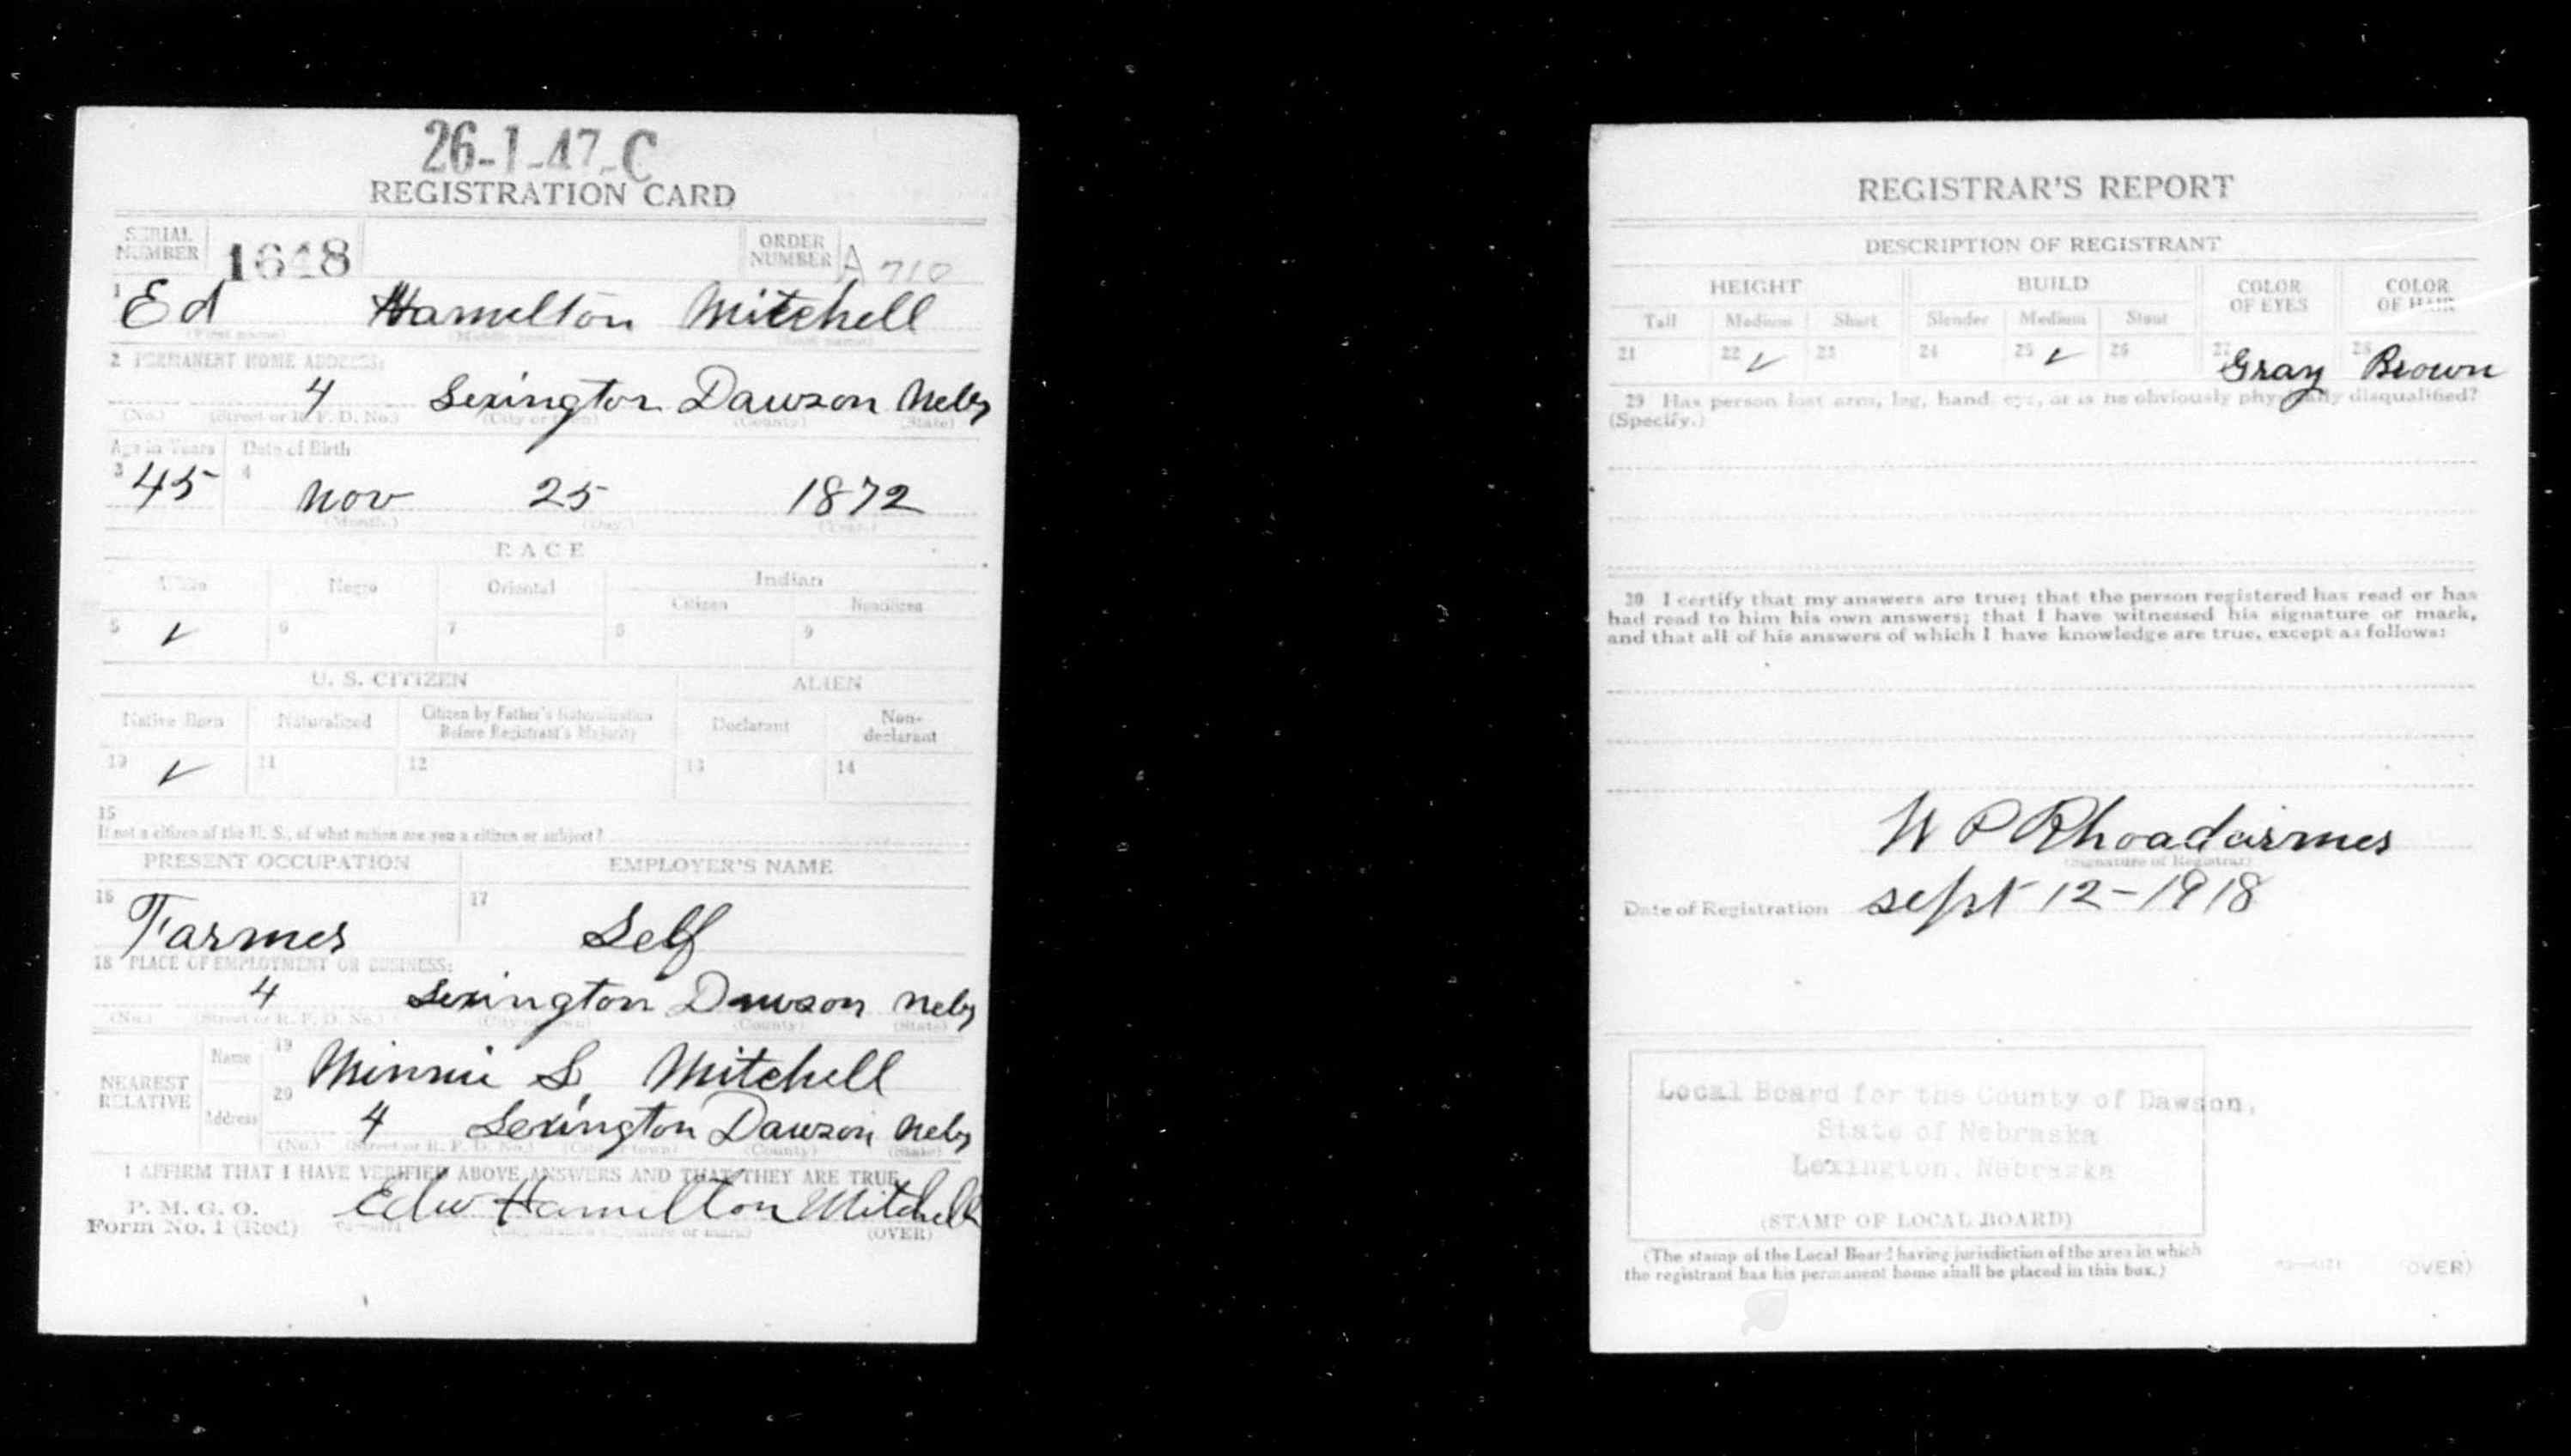 26-1-47-C
REGISTRATION CARD
SERIAL NUMBER 1648 ORDER NUMBER A 710
1 Ed Hamelton Mitchell
(First name) (Middle name) (Last name)
2 PERMANENT HOME ADDRESS:
4 Lexington Dawson Nebr
(No.) (Street or R. F. D. No.) (City or town) (County) (State)
Age in Years Date of Birth
3 45 4 Nov 25 1872
(Month.) (Day.) (Year.)
RACE
White Negro Oriental Indian
Citizen Noncitizen
5 ✓ 6 7 8 9
U. S. CITIZEN ALIEN
Native Born Naturalized Citizen by Father's Naturalization Before Registrant's Majority Declarant Non-declarant
10 ✓ 11 12 13 14
15
If not a citizen of the U. S., of what nation are you a citizen or subject?
PRESENT OCCUPATION EMPLOYER'S NAME
16 Farmer 17 Self
18 PLACE OF EMPLOYMENT OR BUSINESS:
4 Lexington Dawson Nebr
(No.) (Street or R. F. D. No.) (City or town) (County) (State)
NEAREST RELATIVE
Name 19 Minnie S. Mitchell
Address 20 4 Lexington Dawson Nebr
(No.) (Street or R. F. D. No.) (City or town) (County) (State)
I AFFIRM THAT I HAVE VERIFIED ABOVE ANSWERS AND THAT THEY ARE TRUE
P. M. G. O.
Form No. 1 (Red) Edw Hamilton Mitchell
(Registrant's signature or mark) (OVER)
REGISTRAR'S REPORT
DESCRIPTION OF REGISTRANT
HEIGHT BUILD COLOR OF EYES COLOR OF HAIR
Tall Medium Short Slender Medium Stout
21 22 ✓ 23 24 25 ✓ 26 27 Gray 28 Brown
29 Has person lost arm, leg, hand, eye, or is he obviously physically disqualified?
(Specify.)
30 I certify that my answers are true; that the person registered has read or has
had read to him his own answers; that I have witnessed his signature or mark,
and that all of his answers of which I have knowledge are true, except as follows:
W P Rhoadarmer
(Signature of Registrar)
Date of Registration Sept 12-1918
Local Board for the County of Dawson,
State of Nebraska
Lexington, Nebraska
(STAMP OF LOCAL BOARD)
(The stamp of the Local Board having jurisdiction of the area in which
the registrant has his permanent home shall be placed in this box.)
(OVER)